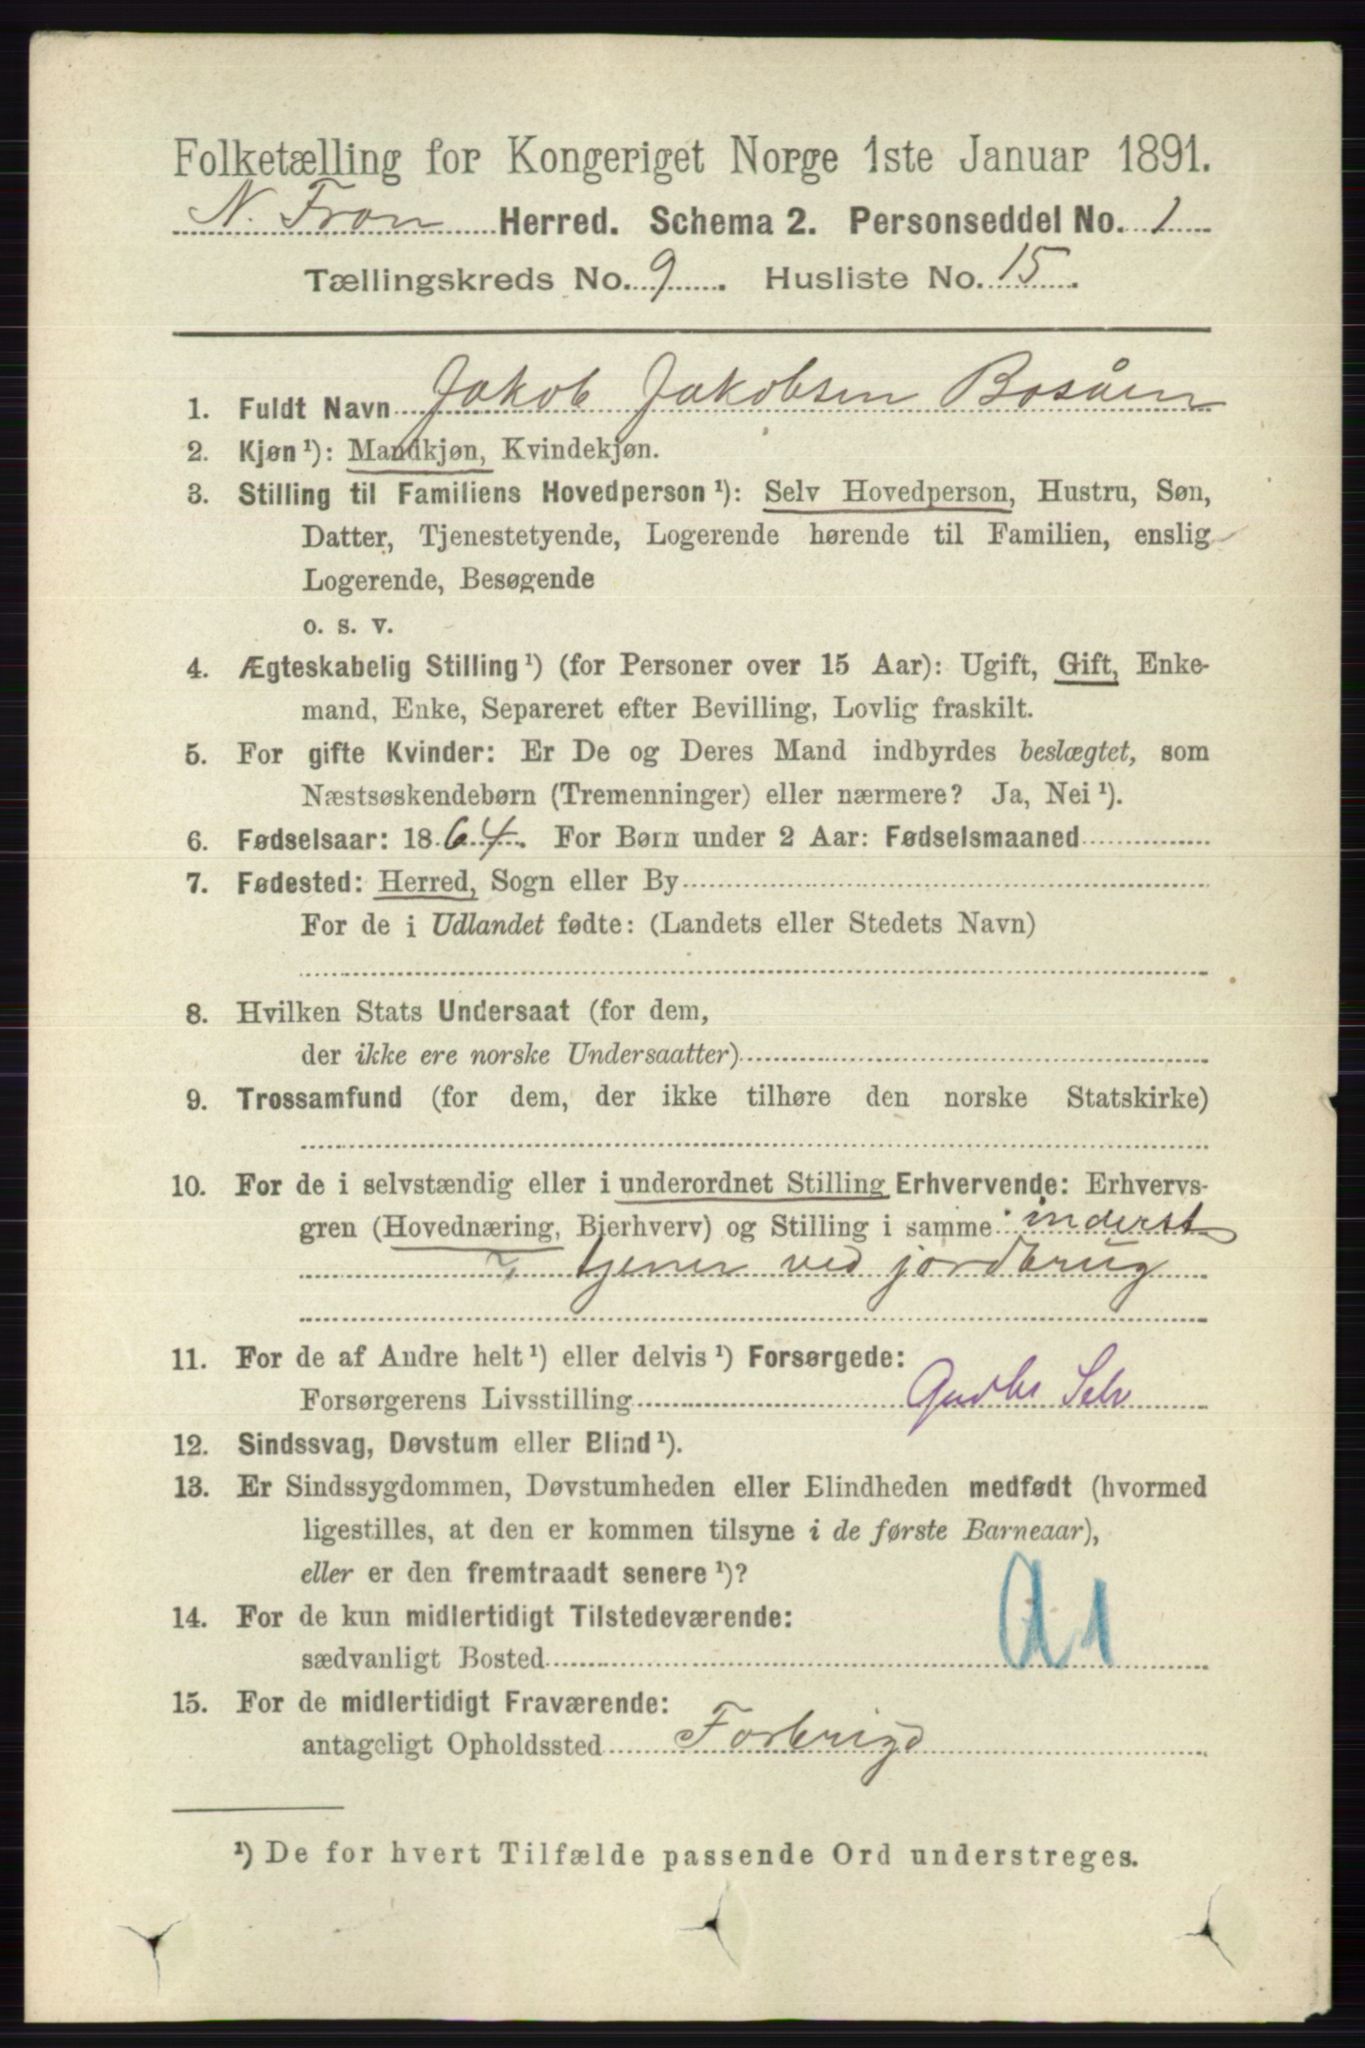 Folketælling for Kongeriget Norge 1ste Januar 1891.
N. Fron Herred. Schema 2. Personseddel No. 1
Tællingskreds No. 9. Husliste No. 15.
1. Fuldt Navn Jakob Jakobsen Bosåen
2. Kjøn ¹): Mandkjøn, Kvindekjøn.
3. Stilling til Familiens Hovedperson ¹): Selv Hovedperson, Hustru, Søn,
Datter, Tjenestetyende, Logerende hørende til Familien, enslig
Logerende, Besøgende
o. s. v.
4. Ægteskabelig Stilling ¹) (for Personer over 15 Aar): Ugift, Gift, Enke-
mand, Enke, Separeret efter Bevilling, Lovlig fraskilt.
5. For gifte Kvinder: Er De og Deres Mand indbyrdes beslægtet, som
Næstsøskendebørn (Tremenninger) eller nærmere? Ja, Nei ¹).
6. Fødselsaar: 1864. For Børn under 2 Aar: Fødselsmaaned
7. Fødested: Herred, Sogn eller By
For de i Udlandet fødte: (Landets eller Stedets Navn)
8. Hvilken Stats Undersaat (for dem,
der ikke ere norske Undersaatter)
9. Trossamfund (for dem, der ikke tilhøre den norske Statskirke)
10. For de i selvstændig eller i underordnet Stilling Erhvervende: Erhvervs-
gren (Hovednæring, Bierhverv) og Stilling i samme inderst
tjener ved jordbrug
11. For de af Andre helt ¹) eller delvis ¹) Forsørgede:
Forsørgerens Livsstilling Gudbr Selv
12. Sindssvag, Døvstum eller Blind ¹).
13. Er Sindssygdommen, Døvstumheden eller Blindheden medfødt (hvormed
ligestilles, at den er kommen tilsyne i de første Barneaar),
eller er den fremtraadt senere ¹)?
14. For de kun midlertidigt Tilstedeværende:
sædvanligt Bosted
15. For de midlertidigt Fraværende:
antageligt Opholdssted Forbrigd
¹) De for hvert Tilfælde passende Ord understreges.